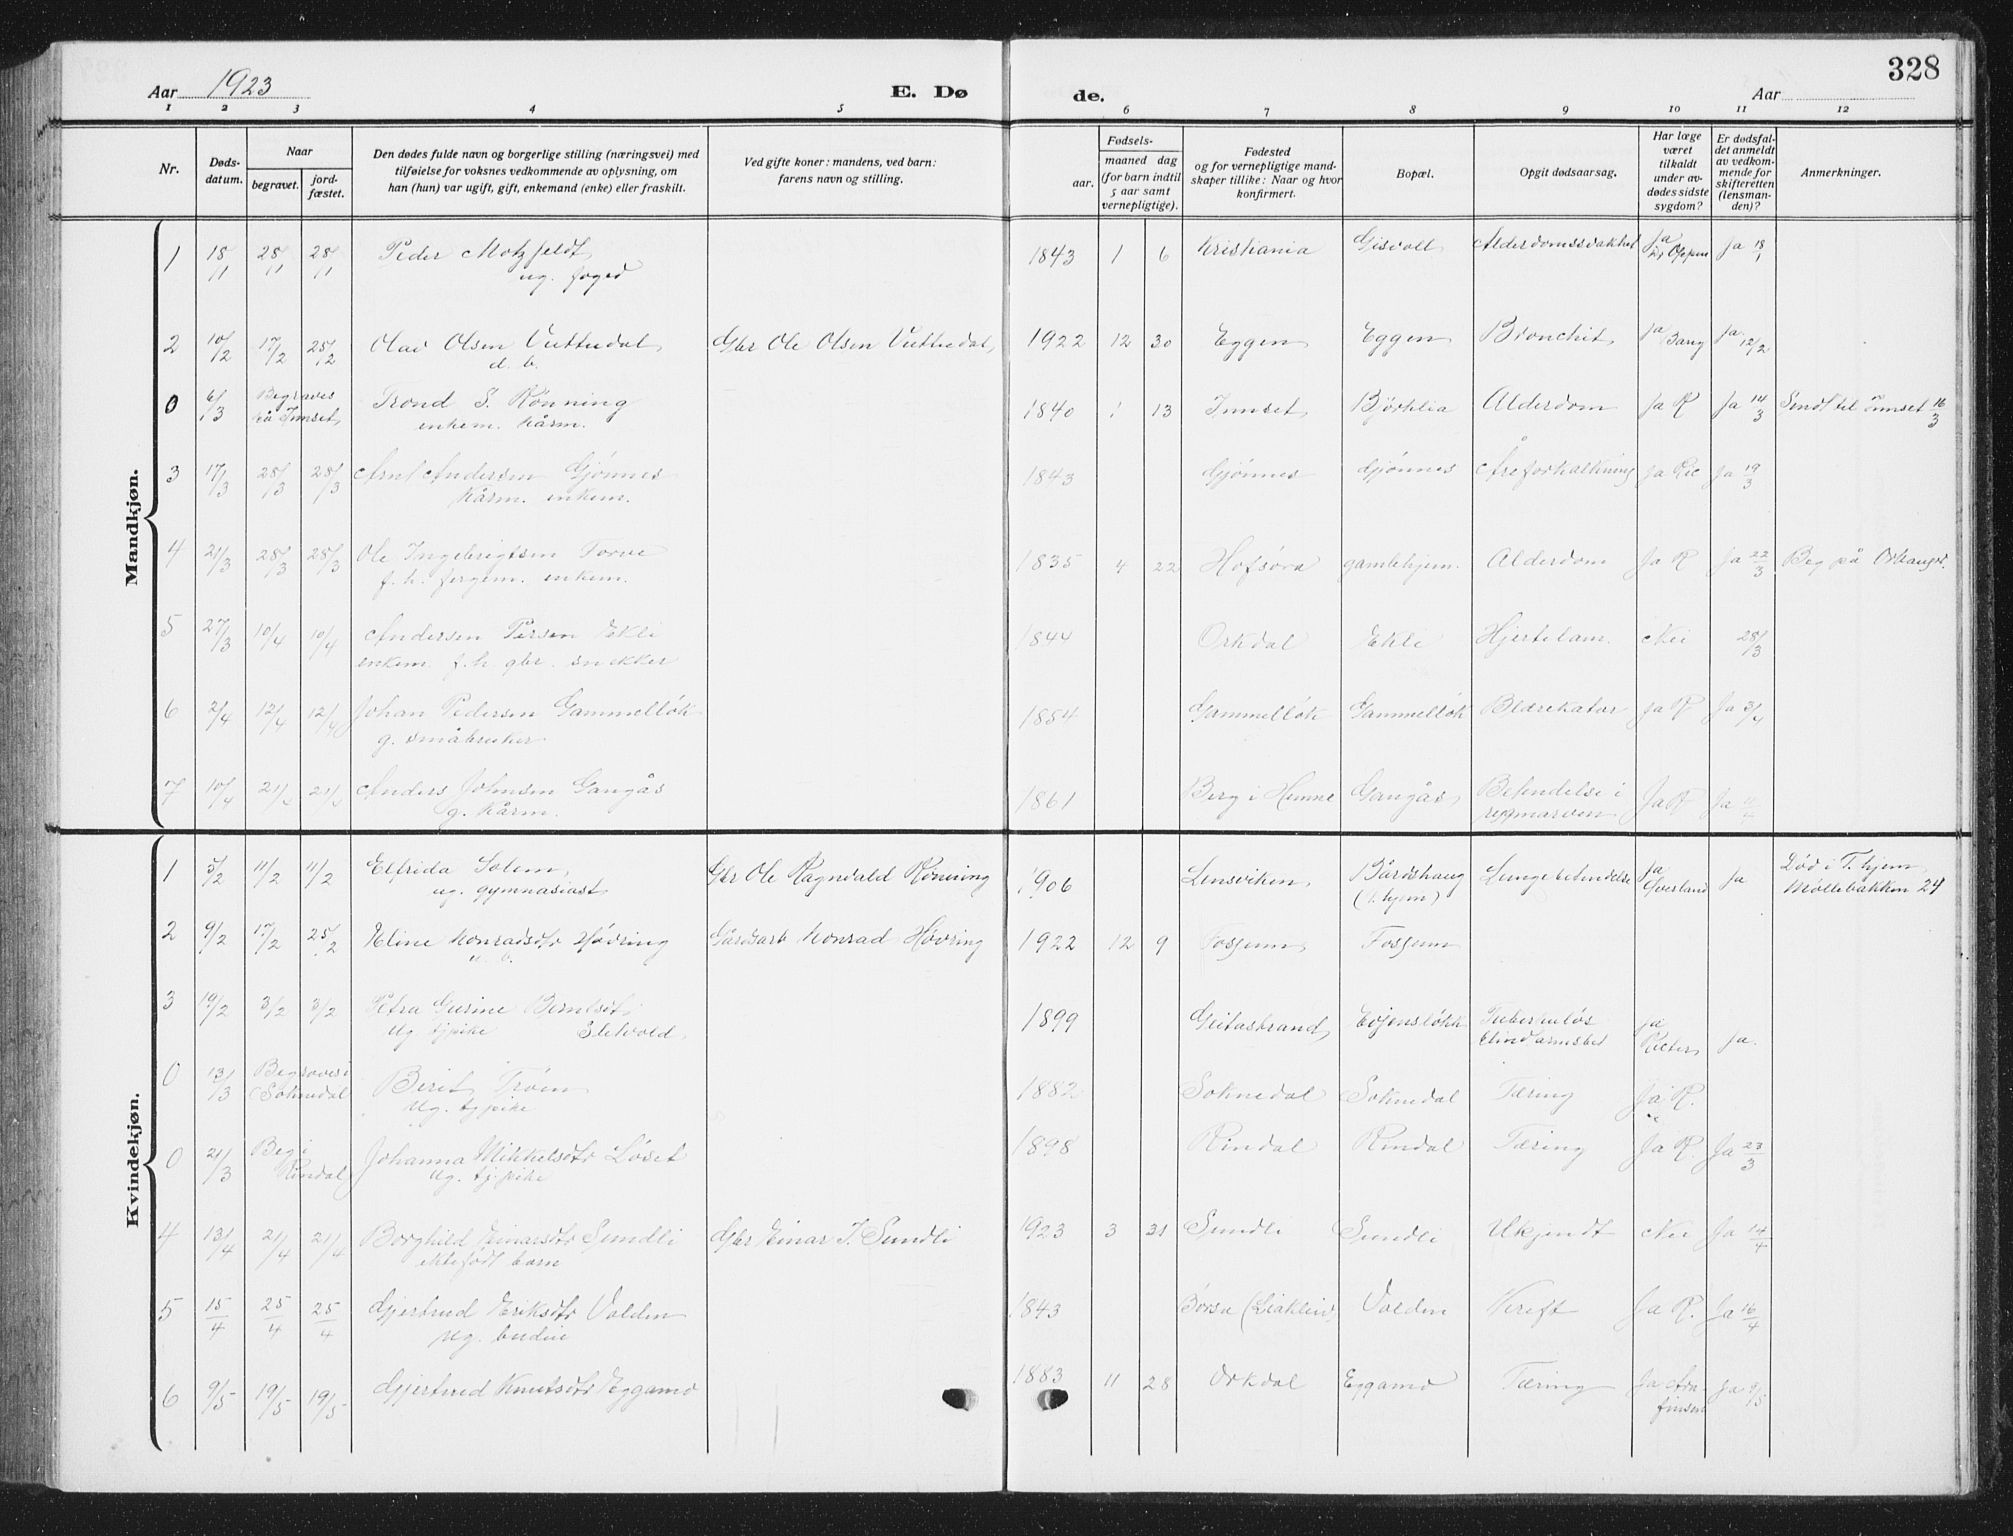 328
Aar 1923
E. Dø
de.
Aar
1 2 3 4 5 6 7 8 9 10 11 12
Nr.
Døds-
datum.
Naar
begravet.
jord-
fæstet.
Den dødes fulde navn og borgerlige stilling (næringsvei) med
tilføielse for voksnes vedkommende av oplysning, om
han (hun) var ugift, gift, enkemand (enke) eller fraskilt.
Ved gifte koner: mandens, ved barn:
farens navn og stilling.
Fødsels-
aar.
maaned dag
(for barn indtil
5 aar samt
vernepligtige).
Fødested
og for vernepligtige mand-
skaper tillike: Naar og hvor
konfirmert.
Bopæl.
Opgit dødsaarsag.
Har læge
været
tilkaldt
under av-
dødes sidste
sygdom?
Er dødsfal-
det anmeldt
av vedkom-
mende for
skifteretten
(lensman-
den)?
Anmerkninger.
Mandkjøn.
1 18/1 25/1 25/1 Peder Motzfeldt 1843 1 6 Kristiania Gisvoll Alderdomssvakhet Ja Dr Oppen Ja 18/1
ug. foged
2 10/2 17/2 25/2 Olav Olsen Vuttudal Gbr Ole Olsen Vuttudal, 1922 12 30 Eggen Eggen Bronchit Ja Bang Ja 12/2
d. b.
0 6/3 Begraves Trond S. Rønning 1840 1 13 Innset Bjørhlia Alderdom Ja R Ja 14/3 Sendt til Innset 16/3
på Innset, enkem. kårm.
3 17/3 25/3 25/3 Arnt Andersen Gjønnes 1843 Gjønnes Gjønnes Åreforkalkning Ja Ric Ja 19/3
Kårm. enkem.
4 21/3 28/3 28/3 Ole Ingebrigtsen Torve 1835 4 22 Hofsøra gamlehjem. Alderdom Ja R Ja 22/3 Beg på Orkanger.
f. h. fergem. enkem.
5 27/3 10/4 10/4 Andersen Persen Ekli 1844 Orkdal Ekli Hjertelam. Nei 28/3
enkem. f. h. gbr. snekker
6 2/4 12/4 12/4 Johan Pedersen Gammelløk 1854 Gammelløk Gammelløk Blærekatar Ja R Ja 3/4
g. småbruker
7 10/4 21/4 21/4 Anders Johnsen Gangås 1861 Berg i Hemne Gangås, Betendelse i Ja R Ja 11/4
g. Kårm. rygmarven
Kvindekjøn.
1 5/2 11/2 11/2 Elfrida Solem, Gbr Ole Ragnvald Rønning 1906 Lensviken, Bårdshaug Lungebetendelse Ja Ja Død i T.hjem
ug. gymnasiast (T. hjem) Gverland Møllebakken 24
2 9/2 17/2 25/2 Eline Konradsdtr Høvring Gårdsarb Konrad Høvring 1922 12 9 Fossum, Fossum
u. b.
3 19/2 3/2 3/2 Petra Gurine Berntsdt. 1899 Geitastrand, Evjensløkk Tuberkuløs Ja Ja.
ug. tjpike Sletvold. Ricter,
0 13/3 Begraves i Berit Trøen 1882 Soknedal Soknedal Tæring Ja R.
Soknedal ug. tjpike
0 21/3 Beg i Johanna Mikkelsdtr Løset 1898 Rindal Rindal Tæring Ja R. Ja 23/3
Rindal ug. tjpike
4 13/4 21/4 21/4 Borghild Einarsdtr Sundli Gbr Einar J. Sundli 1923 3 31 Sundli Sundli Ukjendt Nei Ja 14/4
ektefødt barn
5 15/4 25/4 25/4 Gjertrud Eriksdtr Valden 1843 Børsa (Liaklev) Valden Kreft Ja R. Ja 16/4
ug. budeie
6 9/5 19/5 19/5 Gjertrud Knutsdtr Eggamo 1883 11 28 Orkdal Eggamo Tæring Ja Ara- Ja 9/5
finsen